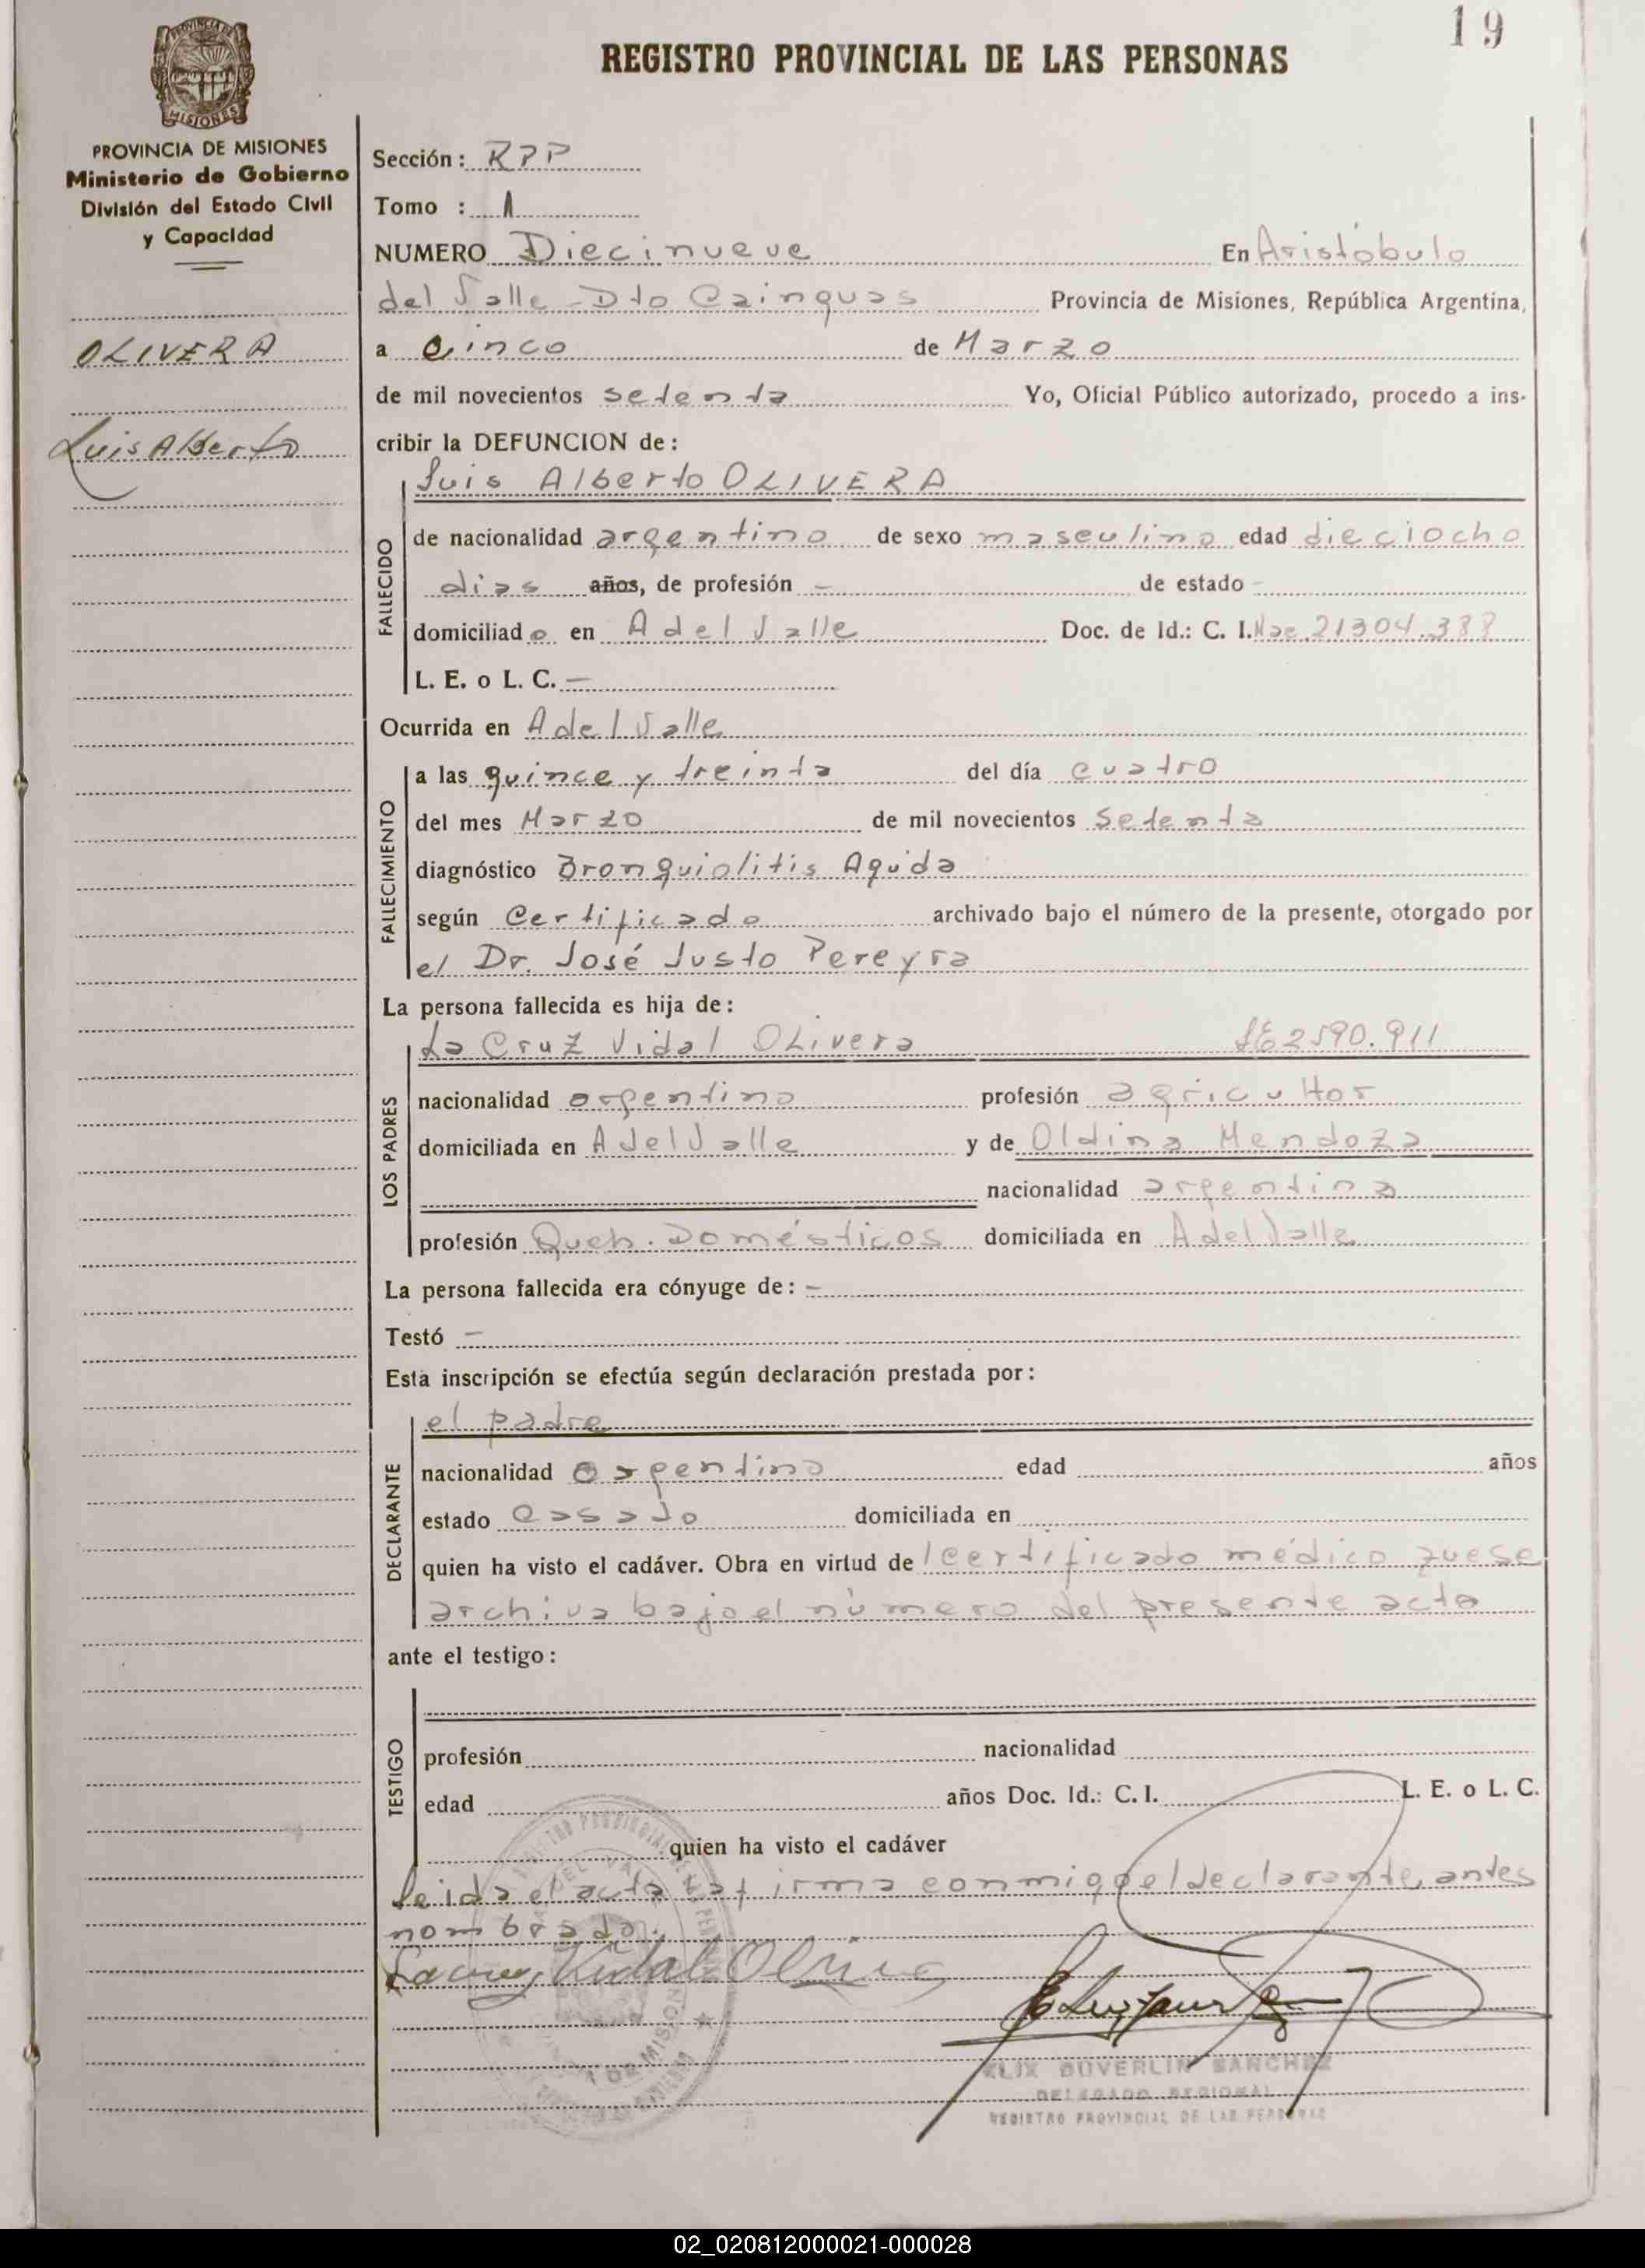 19
REGISTRO PROVINCIAL DE LAS PERSONAS
PROVINCIA DE MISIONES
PROVINCIA DE MISIONES
Ministerio de Gobierno
División del Estado Civil
y Capacidad
OLIVERA
Luis Alberto
Sección: RPP
Tomo : 1
NUMERO Diecinueve En Aristóbulo
del Valle - Dto Cainguas Provincia de Misiones, República Argentina,
a cinco de Marzo
de mil novecientos setenta Yo, Oficial Público autorizado, procedo a ins-
cribir la DEFUNCION de:
Luis Alberto OLIVERA
FALLECIDO
de nacionalidad argentino de sexo masculino edad dieciocho
dias años, de profesión - de estado -
domiciliado en A del Valle Doc. de Id.: C. I. Nac. 21304.388
L. E. o L. C. -
Ocurrida en A del Valle
FALLECIMIENTO
a las quince y treinta del día cuatro
del mes Marzo de mil novecientos Setenta
diagnóstico Bronquiolitis Aguda
según Certificado archivado bajo el número de la presente, otorgado por
el Dr. José Justo Pereyra
La persona fallecida es hija de:
LOS PADRES
La Cruz Vidal Olivera LE 2590.911
nacionalidad argentino profesión agricultor
domiciliada en A del Valle y de Oldina Mendoza
nacionalidad argentina
profesión Queh. Domésticos domiciliada en A del Valle
La persona fallecida era cónyuge de: -
Testó -
Esta inscripción se efectúa según declaración prestada por:
DECLARANTE
el padre
nacionalidad argentino edad años
estado casado domiciliada en
quien ha visto el cadáver. Obra en virtud de l certificado médico que se
archiva bajo el número del presente acta
ante el testigo:
TESTIGO
profesión nacionalidad
edad años Doc. Id.: C. I. L. E. o L. C.
quien ha visto el cadáver
leida el acta la firma conmigo el declarante, antes
nombrado.
Lacruz Vidal Olivera
ELIX DUVERLIN SANCHEZ
DELEGADO REGIONAL
REGISTRO PROVINCIAL DE LAS PERSONAS
02_020812000021-000028